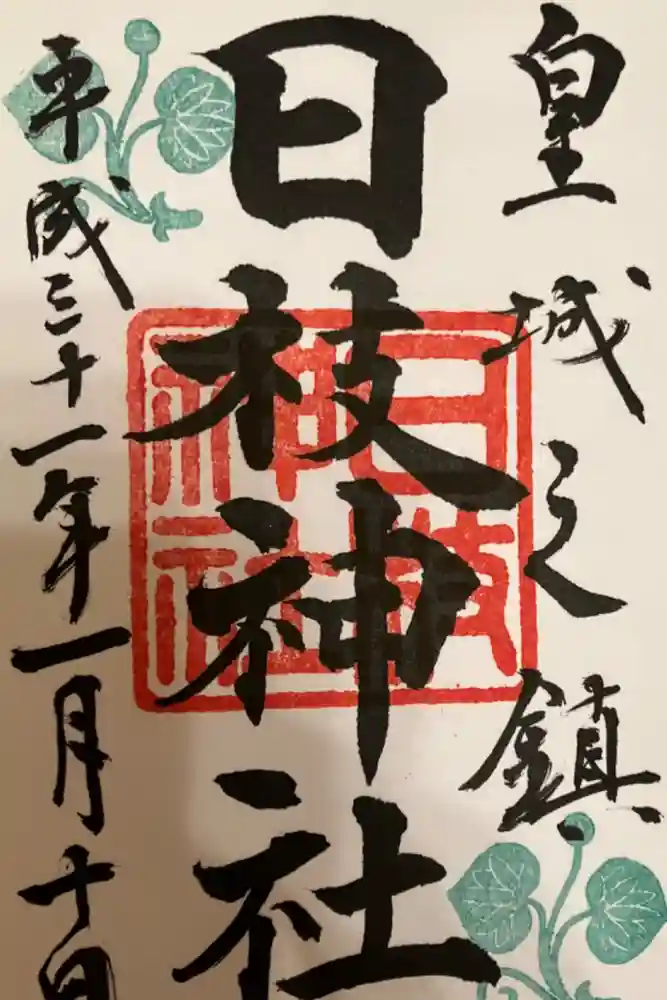 皇城之鎮
日枝神社
日枝神社
平成三十一年一月十日